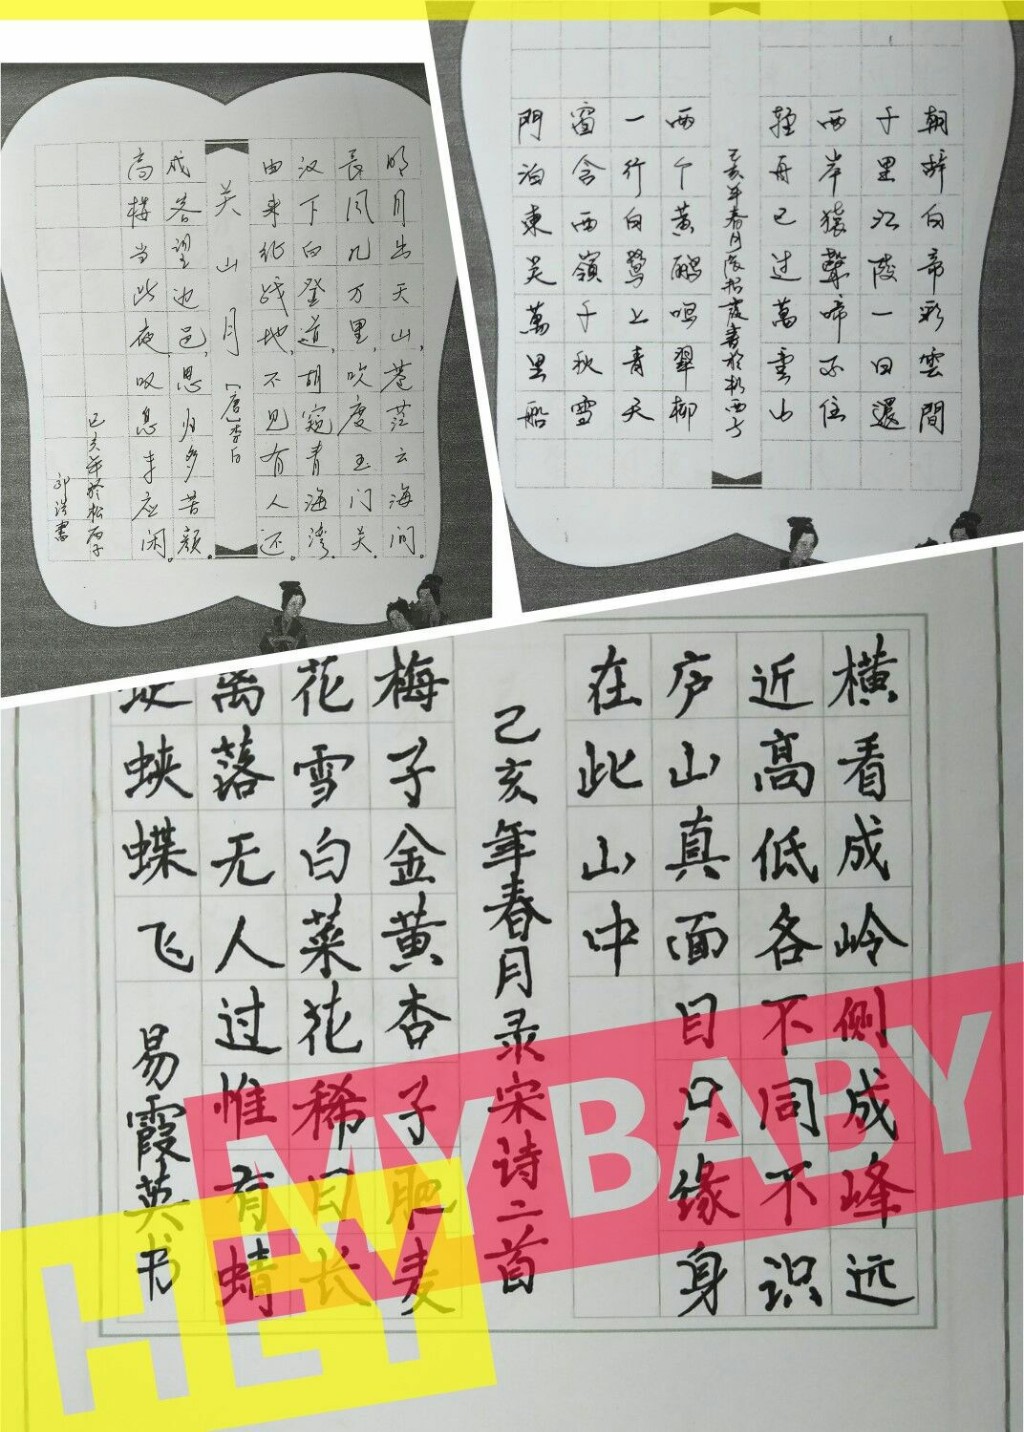 明月出天山,苍茫云海间。
长风几万里,吹度玉门关。
汉下白登道,胡窥青海湾。
由来征战地,不见有人还。
关山月 [唐李白
戍客望边邑,思归多苦颜。
高楼当此夜,叹息未应闲。
己亥年於松西子
朝辞白帝彩雲間
千里江陵一日還
两岸猿聲啼不住
輕舟已过萬重山
己亥年春月霞書於松西子
两个黄鹂鳴翠柳
一行白鹭上青天
窗含西嶺千秋雪
門泊東吴萬里船
横看成岭侧成峰远
近高低各不同不识
庐山真面目只缘身
在此山中
己亥年春月录宋诗二首
梅子金黄杏子肥麦
花雪白菜花稀日长
篱落无人过惟有蜻
蜓蛱蝶飞
易霞英书
MY BABY
HEY